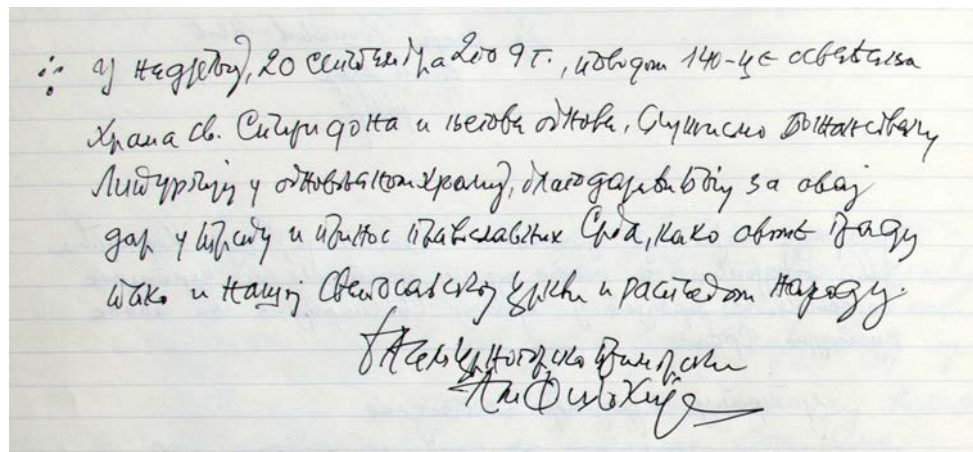 У недјељу, 20 септембра 2009 г., поводом 140-це освећења
Храма св. Спиридона и његове обнове, служисмо Божанствену
Литургију у обновљеном храму, благодарећи Богу за овај
дар у Трсту и принос православних Срба, како овоме граду
тако и нашој Светосавској цркви и распетом народу.
Црногорско приморски
Амфилохије